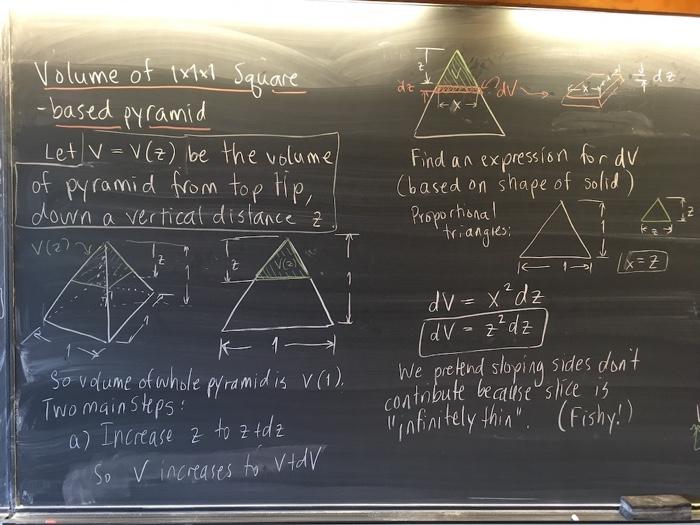 Volume of 1x1x1 Square
-based pyramid
Let V = V(z) be the volume
of pyramid from top tip,
down a vertical distance z
V(z)
z
1
1
1
z
V(z)
1
1
So volume of whole pyramid is V(1).
Two main steps:
a) Increase z to z+dz
So V increases to V+dV
z
V
dz
x
dV
x
dz
Find an expression for dV
(based on shape of solid)
Proportional
triangles:
1
1
z
z
x = z
dV = x²dz
dV = z²dz
We pretend sloping sides don't
contribute because slice is
"infinitely thin". (Fishy!)